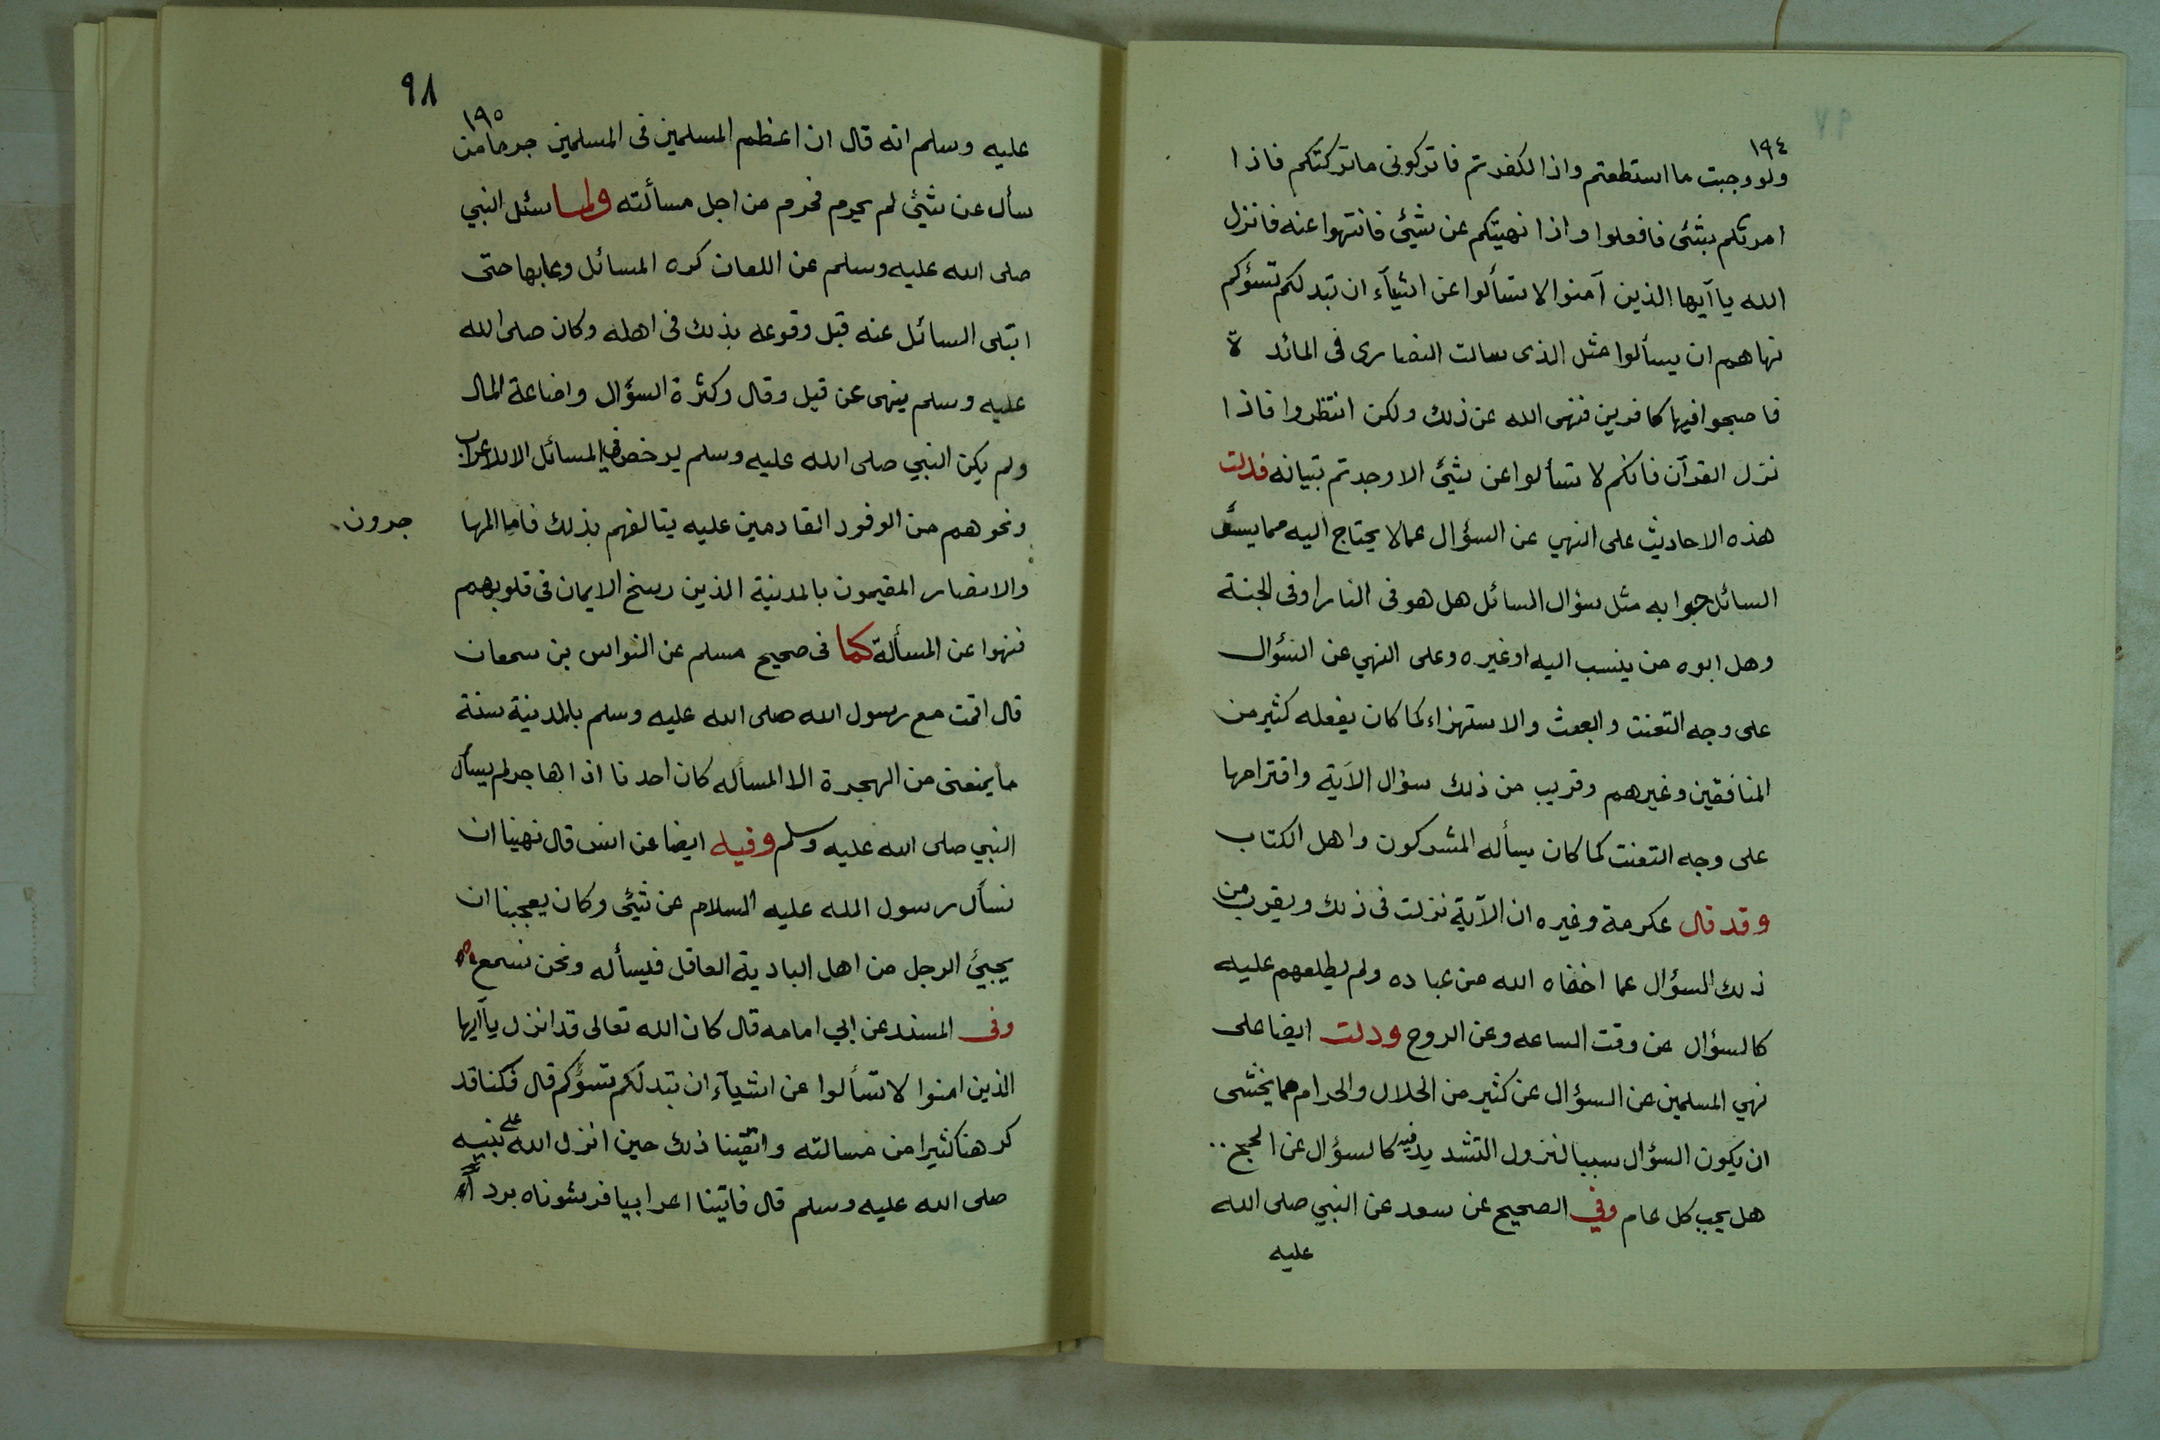 ١٩٤
ولو وجبت ما استطعتم واذا لكفرتم فاتركونى ماتركتكم فاذا
امرتكم بشئ فافعلوا واذا نهيتكم عن شيئ فانتهوا عنه فانزل
الله يا آيها الذين آمنوا لا تسألوا عن اشيآء ان تبد لكم تسؤكم
نهاهم ان يسألوا مثل الذى سالت النصارى فى المائدة
فاصبحوا فيها كافرين فنهى الله عن ذلك ولكن انتظروا فاذا
نزل القرآن فانكم لا تسألوا عن شيئ الا وجدتم تبيانه فدلت
هذه الاحاديث على النهي عن السؤال عما لا يحتاج اليه مما يسؤ
السائل جوابه مثل سؤال السائل هل هو فى النار او فى الجنة
وهل ابوه من ينسب اليه او غيره وعلى النهي عن السؤال
على وجه التعنت والعبث والاستهزاء كما كان يفعله كثير من
المنافقين وغيرهم وقريب من ذلك سؤال الآية واقتراحها
على وجه التعنت كما كان يسأله المشركون واهل الكتاب
وقد قال عكرمة وغيره ان الآية نزلت فى ذلك ويقرب من
ذلك السؤال عما اخفاه الله من عباده ولم يطلعهم عليه
كالسؤال عن وقت الساعه وعن الروح ودلت ايضا على
نهي المسلمين عن السؤال عن كثير من الحلال والحرام مما يخشى
ان يكون السؤال سببا لنزول التشديد فيه كالسؤال عن الحج ..
هل يجب كل عام وفي الصحيح عن سعد عن النبي صلى الله
عليه
٩٨
١٩٥
عليه وسلم انه قال ان اعظم المسلمين فى المسلمين جرما من
سأل عن شيئ لم يحرم فحرم من اجل مسألته ولما سئل النبي
صلى الله عليه وسلم عن اللعان كره المسائل وعابها حتى
ابتلى السائل عنه قبل وقوعه بذلك فى اهله وكان صلى الله
عليه وسلم ينهى عن قيل وقال وكثرة السؤال واضاعة المال
ولم يكن النبي صلى الله عليه وسلم يرخص في المسائل الا للاعراب
ونحوهم من الوفود القادمين عليه يتالفهم بذلك فاما المها
جرون
والانصار المقيمون بالمدينة الذين رسخ الايمان فى قلوبهم
فنهوا عن المسألة كما فى صحيح مسلم عن النواس بن سمعان
قال اقمت مع رسول الله صلى الله عليه وسلم بالمدينة سنة
ما يمنعنى من الهجرة الا المسأله كان احدنا اذا هاجر لم يسأل
النبي صلى الله عليه وسلم وفيه ايضا عن انس قال نهينا ان
نسأل رسول الله عليه السلام عن شيئ وكان يعجبنا ان
يجيئ الرجل من اهل البادية العاقل فيسأله ونحن نسمع
وفى المسند عن ابي امامه قال كان الله تعالى قد انزل يا آيها
الذين امنوا لا تسألوا عن اشيآء ان تبد لكم تسؤكم قال فكنا قد
كرهنا كثيرا من مسالته واتقينا ذلك حين انزل الله على نبيه
صلى الله عليه وسلم قال فاتينا اعرابيا فرشوناه برداء